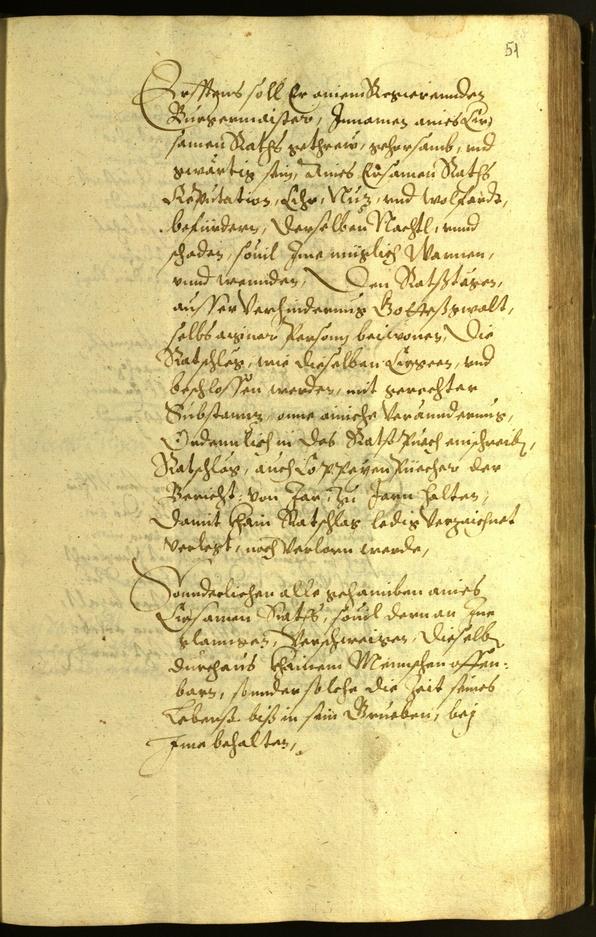 51
Erstens soll Er ainem Regierennden
Bürgermaister, Innamen aines Er-
samen Raths gethrew, gehorsamb, vnd
gewärtig sein, Aines Ersamen Raths
Reputation, Ehr, Nuz, vnd wolfardt,
befürdern, derselben Nachtl, vnnd
schaden, souil Ime müglich Warnen,
vnnd wennden, Den Ratstägen,
ausser Verhindernus Gottes gwalt,
selbs aigner Person beiwonen, Die
Ratschleg, wie dieselben Ergeen, vnd
beschlossen werden, mit gerechter
Substannz, onne ainiche Veränndernus,
Ordennlich in das Ratspuech einschreiben,
Ratschleg, auch Coppeyen Püecher der
Bericht: von Jar, zu Jarn halten,
damit khain Ratschlag ledig Verzaichnet
verlegt, noch Verlorn werde,
Sonnderlichen alle gehaimben aines
Ersamen Raths, souil dern an Ine
glanngen, Verschweigen, dieselben
durchaus khainem Mennschen offen-
barn, sonnder solche die Zeit seines
Lebenns biss in sein Grueben, bej
Ime behalten,